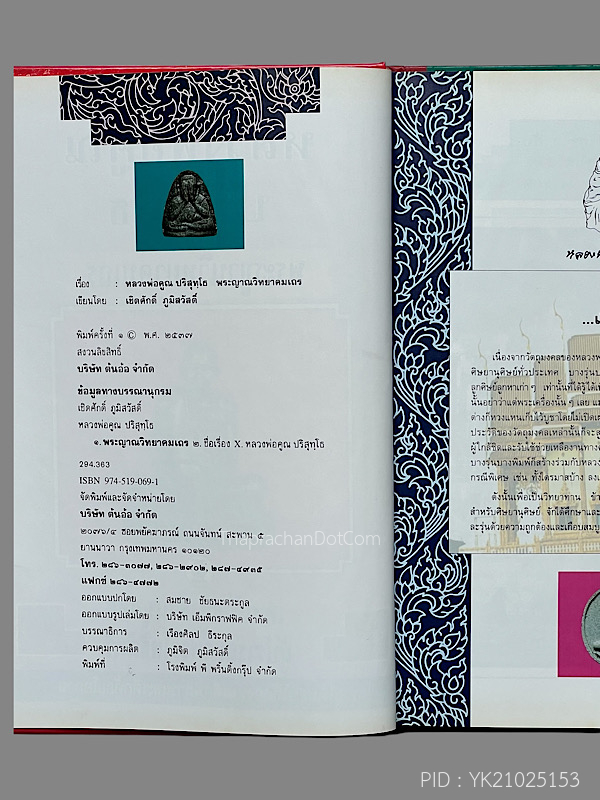 เรื่อง : หลวงพ่อคูณ ปริสุทฺโธ พระญาณวิทยาคมเถร
เขียนโดย : เชิดศักดิ์ ภูมิสวัสดิ์
พิมพ์ครั้งที่ ๑ © พ.ศ. ๒๕๓๗
สงวนลิขสิทธิ์
บริษัท ต้นอ้อ จำกัด
ข้อมูลทางบรรณานุกรม
เชิดศักดิ์ ภูมิสวัสดิ์
หลวงพ่อคูณ ปริสุทฺโธ
๑. พระญาณวิทยาคมเถร ๒. ชื่อเรื่อง X. หลวงพ่อคูณ ปริสุทฺโธ
294.363
ISBN 974-519-069-1
จัดพิมพ์และจัดจำหน่ายโดย
บริษัท ต้นอ้อ จำกัด
๒๐๓๖/๔ ซอยพยัคฆาภรณ์ ถนนจันทน์ สะพาน ๕
ยานนาวา กรุงเทพมหานคร ๑๐๑๒๐
โทร. ๒๘๖-๓๐๗๗, ๒๘๖-๒๙๐๒, ๒๘๗-๔๙๓๕
แฟกซ์ ๒๘๖-๔๗๗๒
ออกแบบปกโดย : สมชาย ชัยธนะตระกูล
ออกแบบรูปเล่มโดย : บริษัท เอ็มพีกราฟฟิค จำกัด
บรรณาธิการ : เรืองศิลป ธีระกุล
ควบคุมการผลิต : ภูมิจิต ภูมิสวัสดิ์
พิมพ์ที่ : โรงพิมพ์ พี พริ้นติ้งกรุ๊ป จำกัด
ThaprachanDotCom
เนื่องจากวัตถุมงคลของหลวงพ
ศิษยานุศิษย์ทั่วประเทศ บางรุ่น
ลูกศิษย์ลูกหาเก่า ๆ เท่านั้นที่ได้รู้ได้
นั้นอย่าว่าแต่พระเครื่องนั้น ๆ เลย แม
ต่างก็หวงแหนเก็บไว้บูชาโดยไม่เปิดเผ
ประวัติของวัตถุมงคลเหล่านั้นก็จะสู
ผู้ใกล้ชิดและรับใช้ช่วยเหลืองานทาง
บางรุ่นบางพิมพ์ก็สร้างร่วมกับหลวง
กรณีพิเศษ เช่น ทั้งไตรมาสบ้าง ลงเ
ดังนั้นเพื่อเป็นวิทยาทาน ข้า
สำหรับศิษยานุศิษย์ จักได้ศึกษาและ
ละรุ่นด้วยความถูกต้องและเกือบสมบู
PID : YK21025153